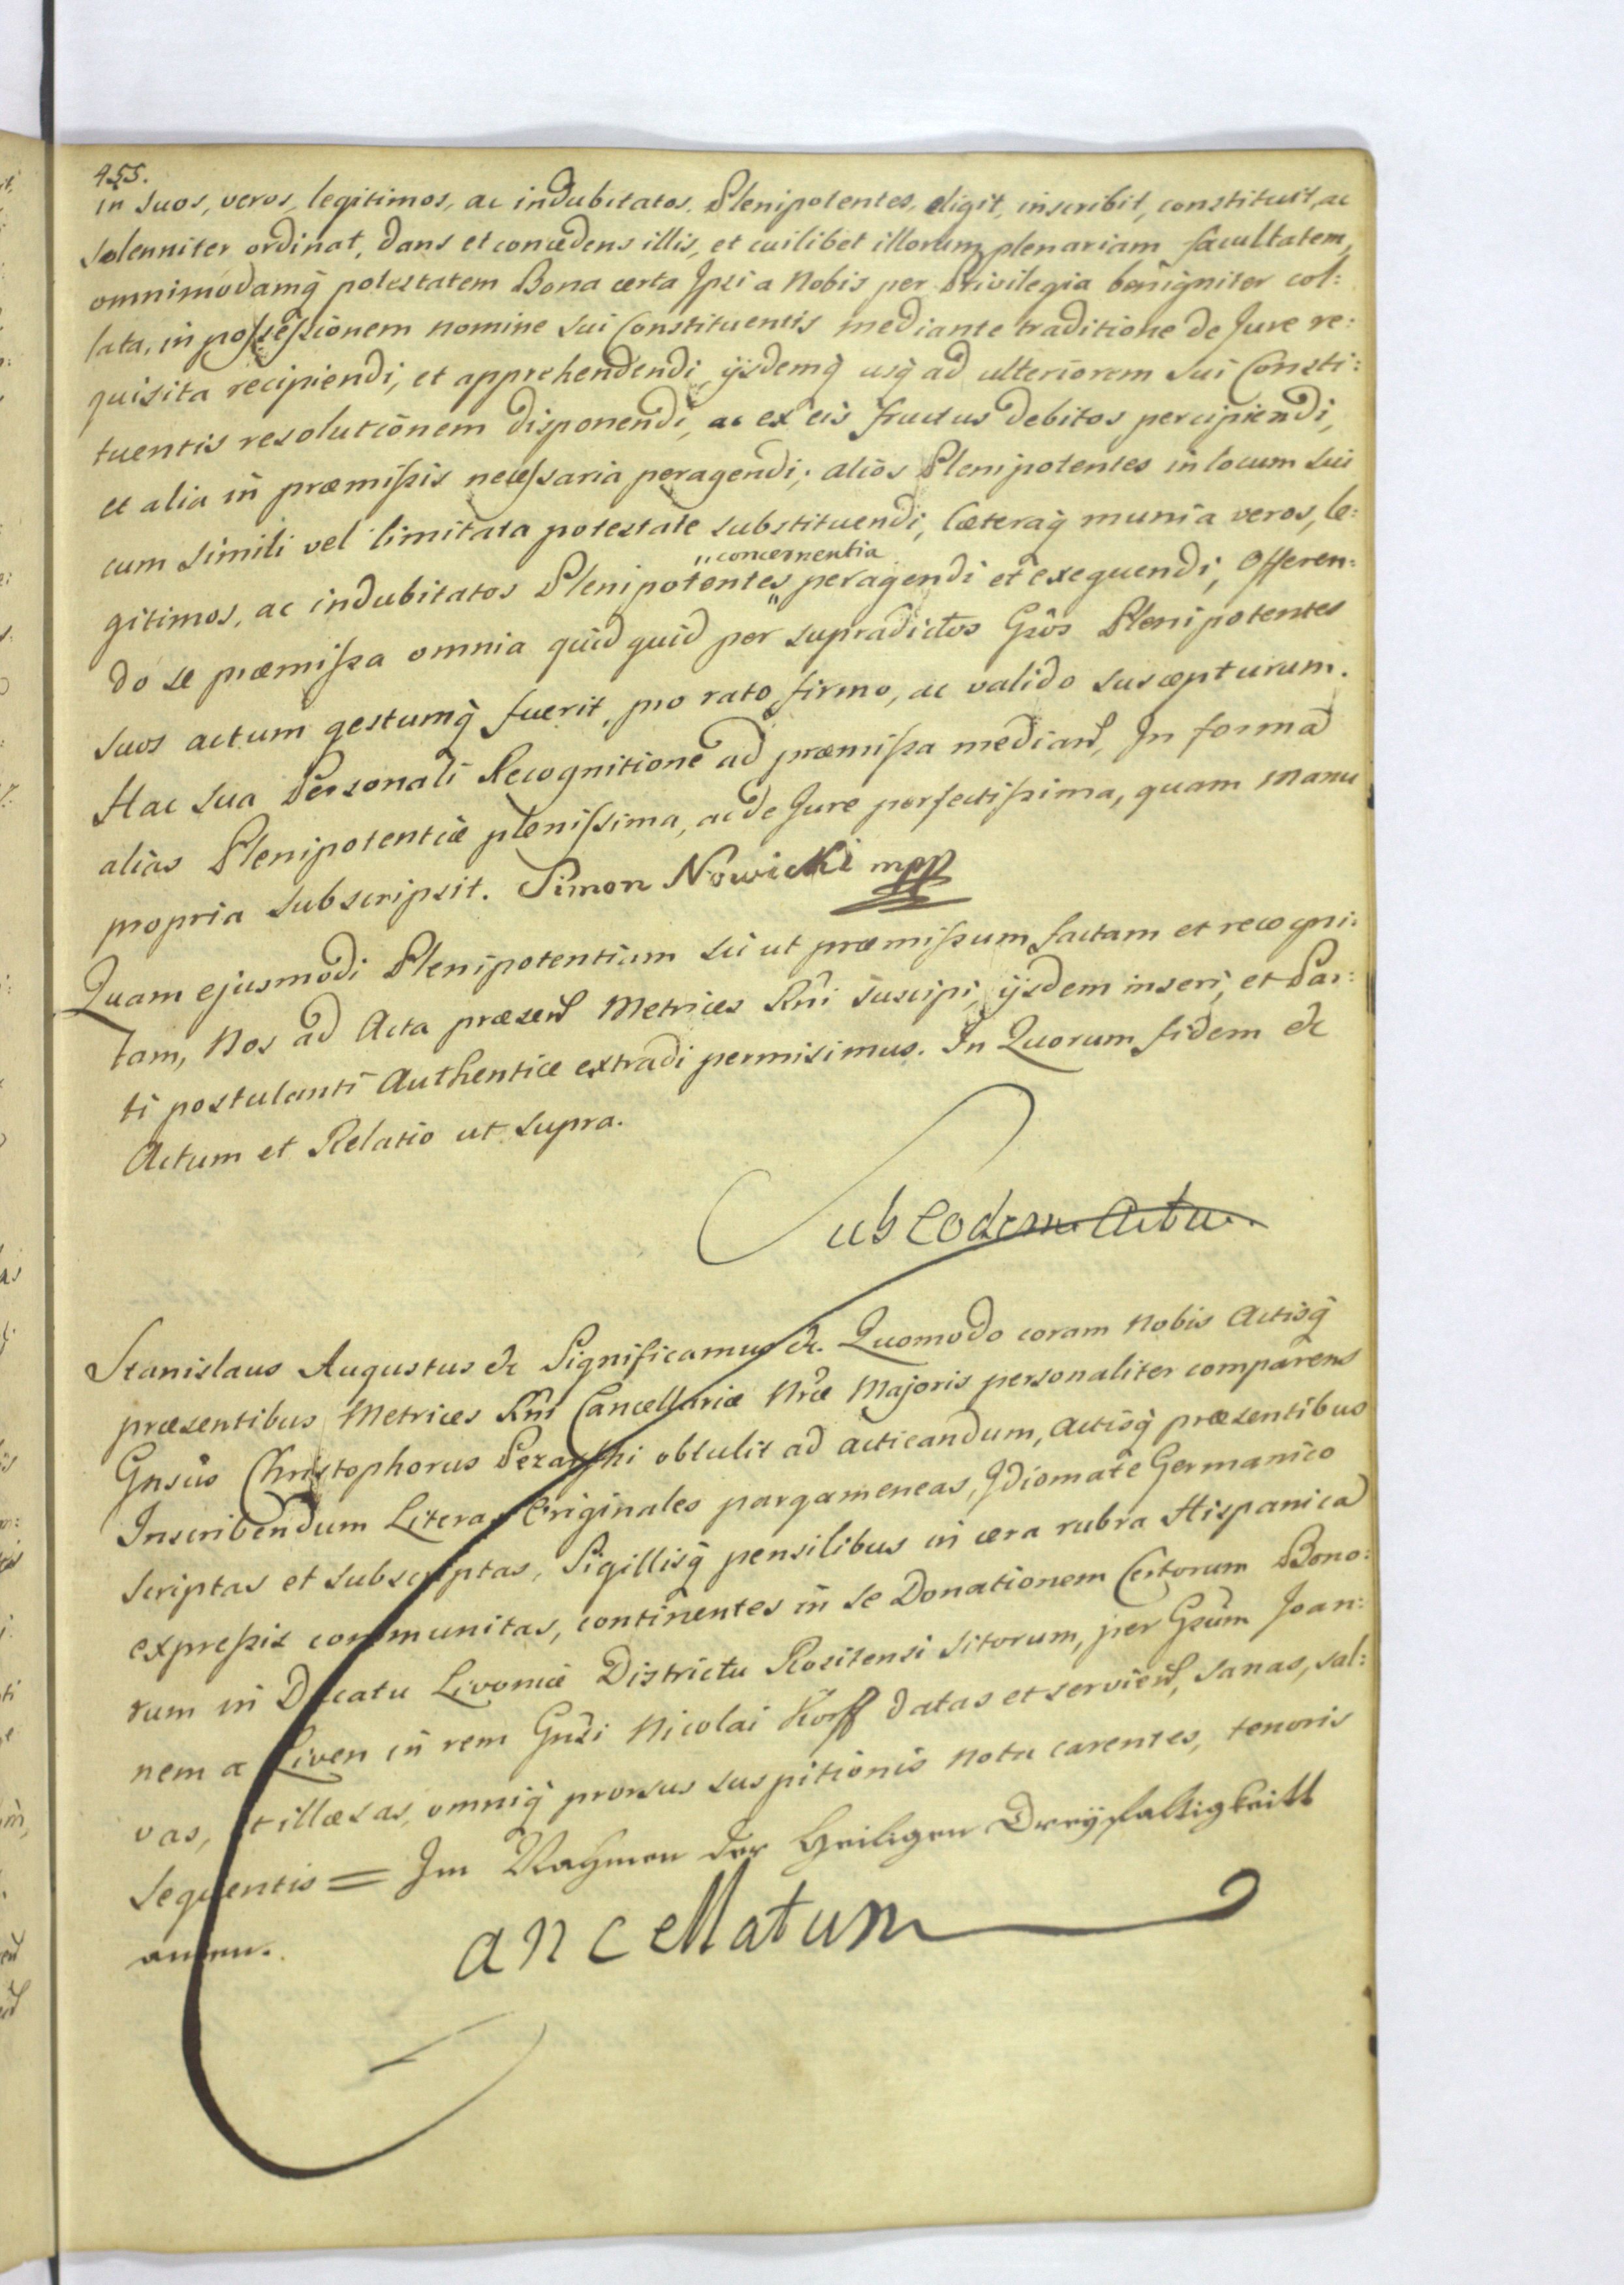 455.
in suos, veros, legitimos, ac indubitatos Plenipotentes, eligit, inscribit, constituit, ac
solenniter ordinat, dans et concedens illis, et cuilibet illorum plenariam facultatem,
omnimodamq̀ potestatem Bona certa Ipsi a Nobis per Privilegia benigniter col:
lata, in possessionem nomine sui Constituentis mediante traditione de Jure re:
quisita recipiendi, et apprehendendi, ijsdemq̀ usq̀ ad ulteriorem sui Consti:
tuentis resolutionem disponendi, ac ex eis fructus debitos percipiendi,
et alia in præmissis necessaria peragendi; alios Plenipotentes in locum sui
cum simili vel limitata potestate substituendi, Cæteraq̀ munia veros, le:
"concernentia
gitimos, ac indubitatos Plenipotentes " peragendi et exequendi, Offeren:
do se præmissa omnia quidquid per supradictos Gsos Plenipotentes
suos actum gestumq̀ fuerit, pro rato, firmo, ac valido suscepturum.
Hac sua Personali Recognitione ad præmissa median̄, In forma
alias Plenipotentiæ plenissima, ac de Jure perfectissima, quam manu
propria subscripsit. Simon Nowicki mpp
Quam ejusmodi Plenipotentiam sic ut præmissum factam et recogni:
tam, Nos ad Acta præsen̄ Metrices Rñi suscipi, ijsdem inseri, et Par:
ti postulanti Authentice extradi permisimus. In Quorum fidem &c
Actum et Relatio ut supra.
Sub Eodem Actu.
Stanislaus Augustus &c Significamus &c. Quomodo coram Nobis Actisq̀
præsentibus Metrices Rñi Cancellariæ Nræ Majoris personaliter comparens
Gnsus Christophorus obtulit ad acticandum, Actisq̀ præsentibus
Inscribendum Literas Originales pargameneas, Idiomate Germanico
scriptas et subscriptas, Sigillisq̀ pensilibus in cera rubra Hispanica
expressis communitas, continentes in se Donationem Certorum Bono:
rum in Ducatu Livoniæ Districtu Rositensi sitorum, per Gsum Joan:
nem a Liven in rem Gnsi Nicolai Korff datas et servien̄, sanas, sal:
vas, et illæsas, omniq̀ prorsus suspitionis nota carentes, tenoris
sequentis = Im Nahmen der Heiligen Dreyfaltigkeitt
amen.
Cancellatum